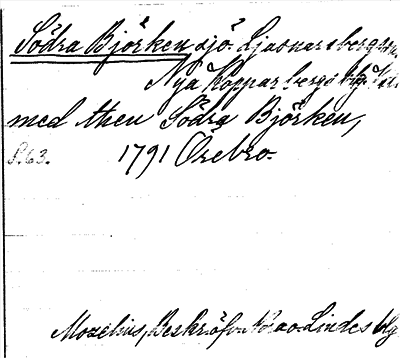 Södra Björken sjö. Ljusnarsbergs
Nya Kopparbergs
med then Södra Björken,
S. 63. 1791 Örebro.
Mozelius, Beskrifn. Nora o. Lindes blg